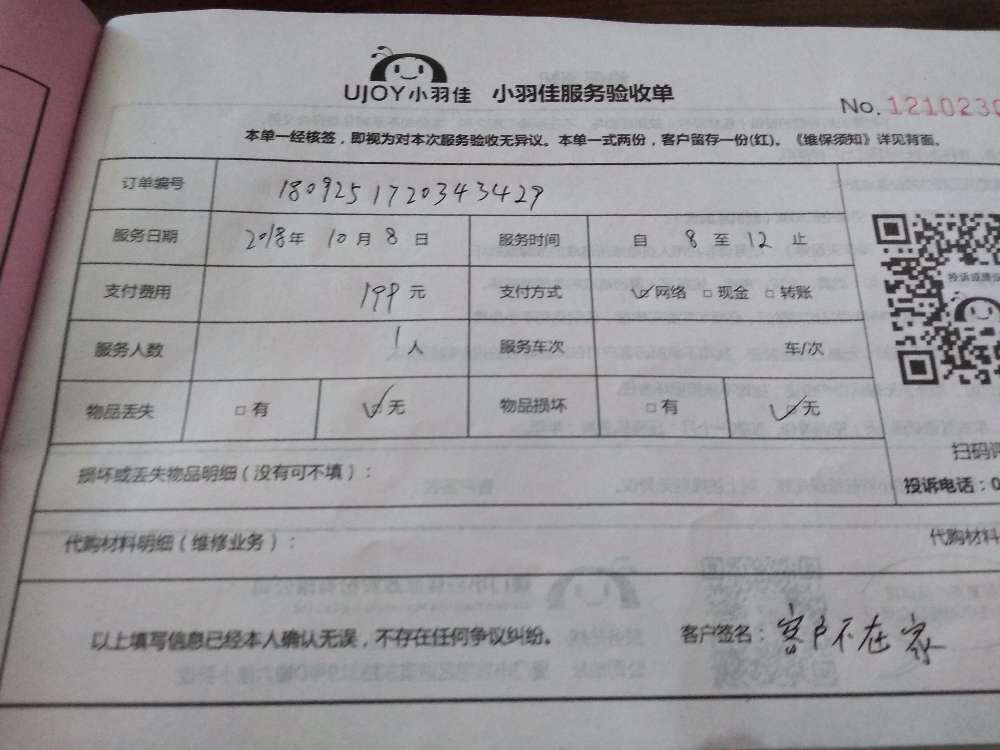 UJOY小羽佳 小羽佳服务验收单
No. 1210230
本单一经核签，即视为对本次服务验收无异议。本单一式两份，客户留存一份(红)。《维保须知》详见背面。
订单编号 1809251720343429
服务日期 2018年 10月 8日 服务时间 自 8 至 12 止
投诉或建议
支付费用 199元 支付方式 ☑网络 □现金 □转账
服务人数 1人 服务车次 车/次
物品丢失 □有 ☑无 物品损坏 □有 ☑无
扫码评
损坏或丢失物品明细（没有可不填）： 投诉电话：0
代购材料明细（维修业务）： 代购材料
以上填写信息已经本人确认无误，不存在任何争议纠纷。 客户签名：客户不在家